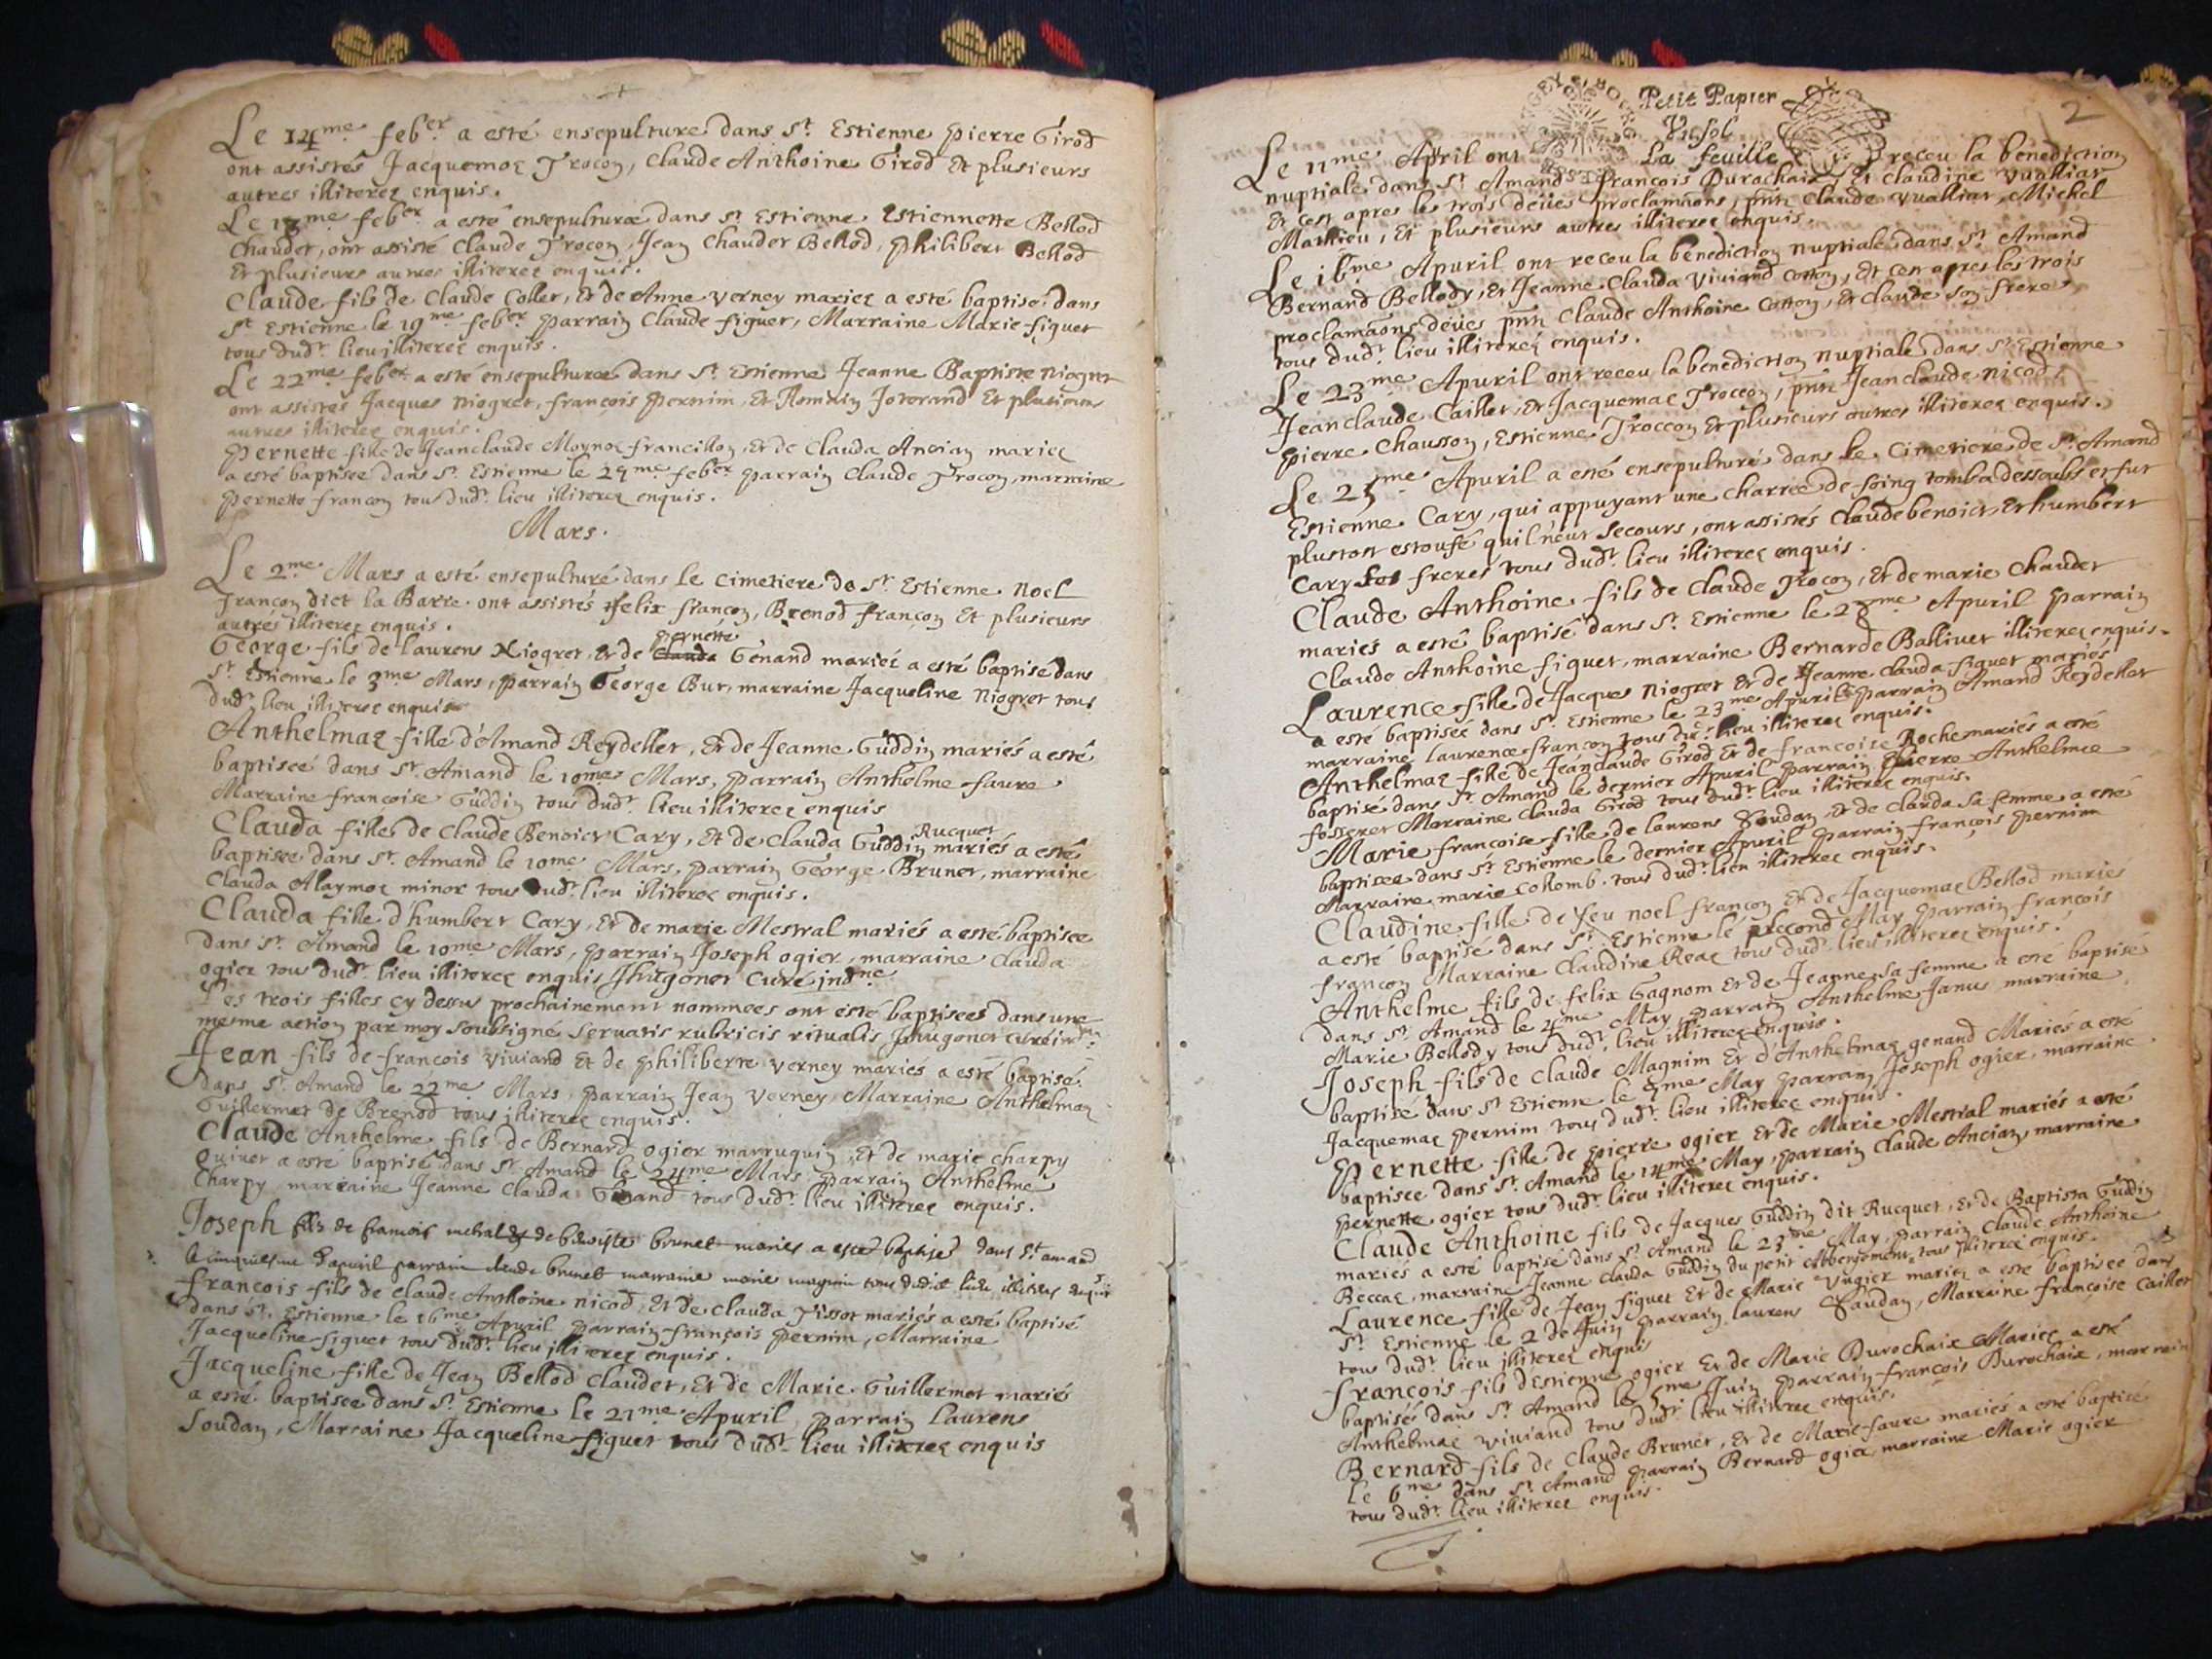 Le 14.me feb.er a esté ensepulture dans S.t Estienne pierre Girod
ont assistés Jacquemoz Trocon, Claude Anthoine Girod Et plusieurs
autres illiterez enquis.
Le feb.er a esté ensepulturœ dans S.t Estienne Estiennette Bellod
Chaudet, ont assisté Claude Trocon, Jean Chaudet Bellod, philibert Bellod
Et plusieurs autres illiterez enquis.
Claude fils de Claude Collet, Et de Anne Verney mariez a esté baptisé dans
S.t Estienne le 19.me feb.er parrain Claude figuet, Marraine Marie figuet
tous dud.t lieu illiterez enquis.
Le 22.me feb.er a esté ensepulturee dans S.t Estienne Jeanne Baptiste Niogret
ont assistés Jacques Niogret, françois pernim, Et Romain Et plusieurs
autres illiterez enquis.
pernette fille de Jeanclaude Moynoz francillon, Et de Clauda Ancian mariez
a esté baptisee dans S.t Estienne le feb.er parrain Claude Trocon, marraine
pernette françon tous dud.t lieu illiterez enquis.
Mars.
Le 2.me Mars a esté ensepulturé dans le cimetiere de S.t Estienne Noel
françon dict la Barre. ont assistés felix françon, Brenod françon Et plusieurs
autres illiterez enquis.
pernette
George fils de laurens Niogret, Et de Clauda Genand mariéz a esté baptisé dans
S.t Estienne le 3.me Mars, parrain George But, marraine Jacqueline Niogret tous
dud.t lieu illiterez enquis
Anthelmaz fille d'Amand Reydellet, Et de Jeanne Guddin mariés a esté
baptiseé dans S.t Amand le 10.me Mars, parrain Anthelme faure
Marraine francoise Guddin tous dud.t lieu illiterez enquis
Rucquet
Clauda fille de Claude Benoict Cary, Et de Clauda Guddin mariés a esté
baptisee dans S.t Amand le 10.me Mars, parrain George Brunet, marraine
Clauda Alaymoz minor tous dud.t lieu illiterez enquis.
Clauda fille d'humbert Cary, Et de marie Mestral mariés a esté baptisee
dans S.t Amand le 10.me Mars, parrain Joseph ogier, marraine Clauda
ogier tous dud.t lieu illiterez enquis Jhugonet Curé ind.ne
Les trois filles cy dessus prochainement nommees ont esté baptisees dans une
mesme action par moy soubsigné servatis rubricis ritualis Jhugonet curé ind.ne
Jean fils de françois Viviand Et de philiberte Verney mariés a esté baptisé
dans S.t Amand le 22.me Mars, parrain Jean Verney, Marraine Anthelmaz
Guillermet de Brenod tous illiterez enquis.
Claude Anthelme fils de Bernard ogier marruquin, Et de marie Charpy
Quivet a esté baptisé dans S.t Amand le 24.me Mars parrain Anthelme
Charpy marraine Jeanne Clauda Genand tous dud.t lieu illiterez enquis.
Joseph fils de francois metral de brunet mariés a esté baptisé dans S.t amand
le cinquiesme d'apuril parrain claude brunet marraine marie magnin tous dudict lieu illiteres enquis
francois fils de Claude Anthoine nicod, Et de Clauda Tissot mariés a esté baptisé
dans S.t Estienne le 16.me Apuril parrain françois pernim, Marraine
Jacqueline figuet tous dud.t lieu illiterez enquis.
Jacqueline fille de Jean Bellod Claudet, Et de Marie Guillermet mariés
a esté baptisee dans S.t Estienne le 21.me Apuril parrain Laurens
Soudan, Marraine Jacqueline figuet tous dud.t lieu illiterez enquis
Petit Papier
2
sol
La feuille
Le 11.me April ont receu la benediction
nuptiale dans S.t Amand françois Durochaix, Et Claudine Vualliar
Et c'est apres les trois deües proclamãons, pñts Claude Vualliar, Michel
Mathieu, Et plusieurs autres illiterez enquis.
Le 16.me Apuril ont receu la benediction nuptiale dans S.t Amand
Bernand Bellody, Et Jeanne Clauda Viviand Cotton, Et c'est apres les trois
proclamãons deües pñts Claude Anthoine Cotton, Et Claude son frere
tous dud.t lieu illiterez enquis.
Le 23.me Apuril ont receu la benediction nuptiale dans S.t Estienne
Jeanclaude Caillet, Et Jacquemaz Troccon, pñts Jeanclaude nicod
pierre Chausson, Estienne Troccon Et plusieurs autres illiterez enquis.
Le 25.me Apuril a esté ensepulturé dans le Cimetiere de S.t Amand
Estienne Cary, qui appuyant une charreé de foing tomba dessoubs et fut
plustost estoufé quil n'eut secours, ont assistés Claude benoict, Et humbert
Cary ses freres tous dud.t lieu illiterez enquis.
Claude Anthoine fils de Claude Trocon, Et de marie Chaudet
mariés a esté baptisé dans S.t Estienne le 28.me Apuril parrain
Claude Anthoine figuet, marraine Bernarde Ballivet illiterez enquis.
Laurence fille de Jacques Niogret Et de Jeanne Clauda figuet mariés
a esté baptisée dans S.t Estienne le 23.me Apuril parrain Amand Reydellet
marraine laurence françon tous du.t lieu illiterez enquis.
Anthelmaz fille de Jeanclaude Girod Et de francoise Roche mariés a esté
baptisé dans S.t Amand le dernier Apuril parrain pierre Anthelmee
fosseret Marraine Clauda Girod tous dud.t lieu illiterez enquis.
Marie francoise fille de laurens Soudan, Et de Clauda sa femme a esté
baptisee dans S.t Estienne le dernier Apuril parrain françois pernim
Marraine marie Collomb. tous dud.t lieu illiterez enquis.
Claudine fille de feu noel françon Et de Jacquemaz Bellod mariés
a esté baptisé dans S.t Estienne le second May parrain françois
françon Marraine Claudine Reaz tous dud.t lieu illiterez enquis.
Anthelme fils de felix Gagnom Et de Jeanne sa femme a esté baptisé
dans S.t Amand le 4.me May, parrain Anthelme Janus marraine
Marie Bellody tous dud.t lieu illiterez enquis.
Joseph fils de Claude Magnim Et d'Anthelmaz genand Mariés a esté
baptisé dans S.t Estienne le May parrain Joseph ogier, marraine
Jacquemaz pernim tous dud.t lieu illiterez enquis.
Pernette fille de pierre ogier Et de Marie Mestral mariés a esté
baptisee dans S.t Amand le 14.me May, parrain Claude Ancian, marraine
pernette ogier tous dud.t lieu illiterez enquis.
Claude Anthoine fils de Jacques Guddin dit Rucquet, Et de Baptista Guddin
mariés a esté baptisé dans S.t Amand le 23.me May, parrain Claude Anthoine
Beccaz, marraine Jeanne Clauda Guddin du petit Abbergement tous illiterez enquis.
Laurence fille de Jean figuet Et de Marie Vugier mariez a esté baptisee dans
S.t Estienne le 2 de Juin parrain laurens Saudan, Marraine francoise Caillet
tous dud.t lieu illiterez enquis
françois fils d'Estienne ogier Et de Marie Durochaix Mariez a esté
baptisés dans S.t Amand le 5.me Juin parrain françois Durochaix, marrain
Anthelmaz Viviand tous dud.t lieu illiterez enquis.
Bernard fils de Claude Brunet, Et de Marie faure mariés a esté baptisé
le 6.me dans S.t Amand parrain Bernard ogier, marraine Marie ogier
tous dud.t lieu illiterez enquis.